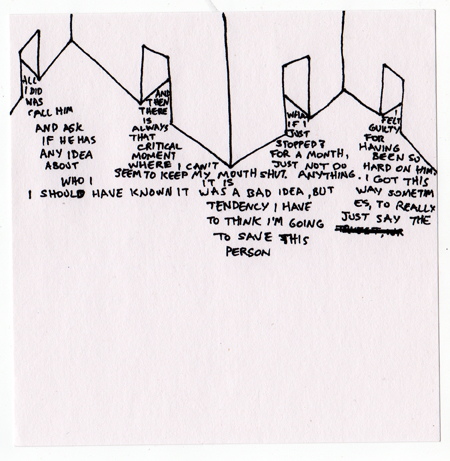 ALL
I DID
WAS
CALL HIM
AND ASK
IF HE HAS
ANY IDEA
ABOUT
WHO I
AND
THEN
THERE
IS
ALWAYS
THAT
CRITICAL
MOMENT
WHERE I CAN'T
SEEM TO KEEP MY MOUTH SHUT.
IT IS
I SHOULD HAVE KNOWN IT WAS A BAD IDEA, BUT
TENDENCY I HAVE
TO THINK I'M GOING
TO SAVE THIS
PERSON
WHAT
IF I
JUST
STOPPED?
FOR A MONTH,
JUST NOT DO
ANYTHING.
I
FELT
GUILTY
FOR
HAVING
BEEN SO
HARD ON HIM
. I GOT THIS
WAY SOMETIM
ES, TO REALLY
JUST SAY THE